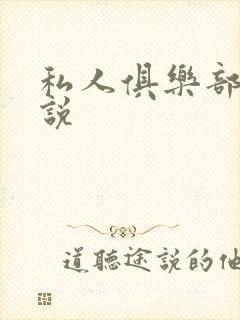 私人俱樂部
說
道聽途說的他